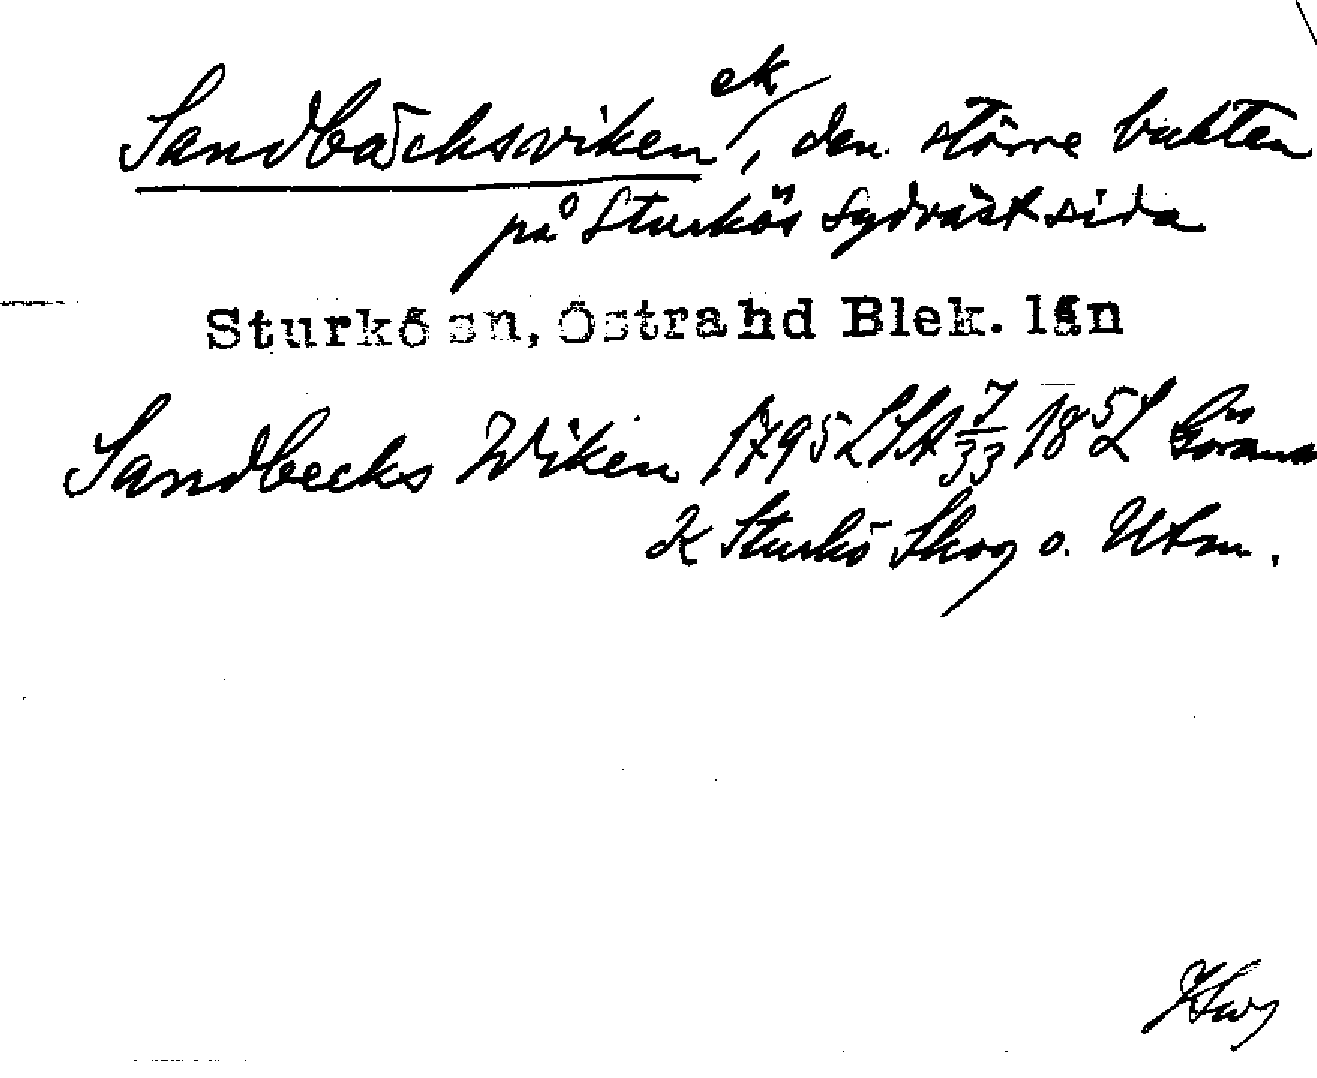 Sandbäcksviken ek, den större bukten
på Sturkös sydvästsida
Sturkö sn, Östra hd Blek. län
Sandbecks Wiken 1795 LSA 7/33 18 5/L
K Sturkö Skog o. Utm.